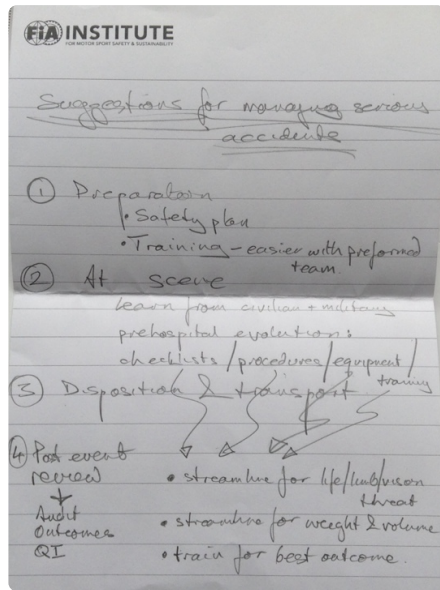 FiA INSTITUTE
FOR MOTOR SPORT SAFETY & SUSTAINABILITY
Suggestions for managing serious
accidents
① Preparation
• Safety plan
• Training – easier with preformed
team.
② At scene
learn from civilian + military
prehospital evolution:
checklists / procedures / equipment /
training
③ Disposition & transport.
④ Post event
review
Audit
Outcomes
QI
• streamline for life/limb/vision
threat
• streamline for weight & volume
• train for best outcome.